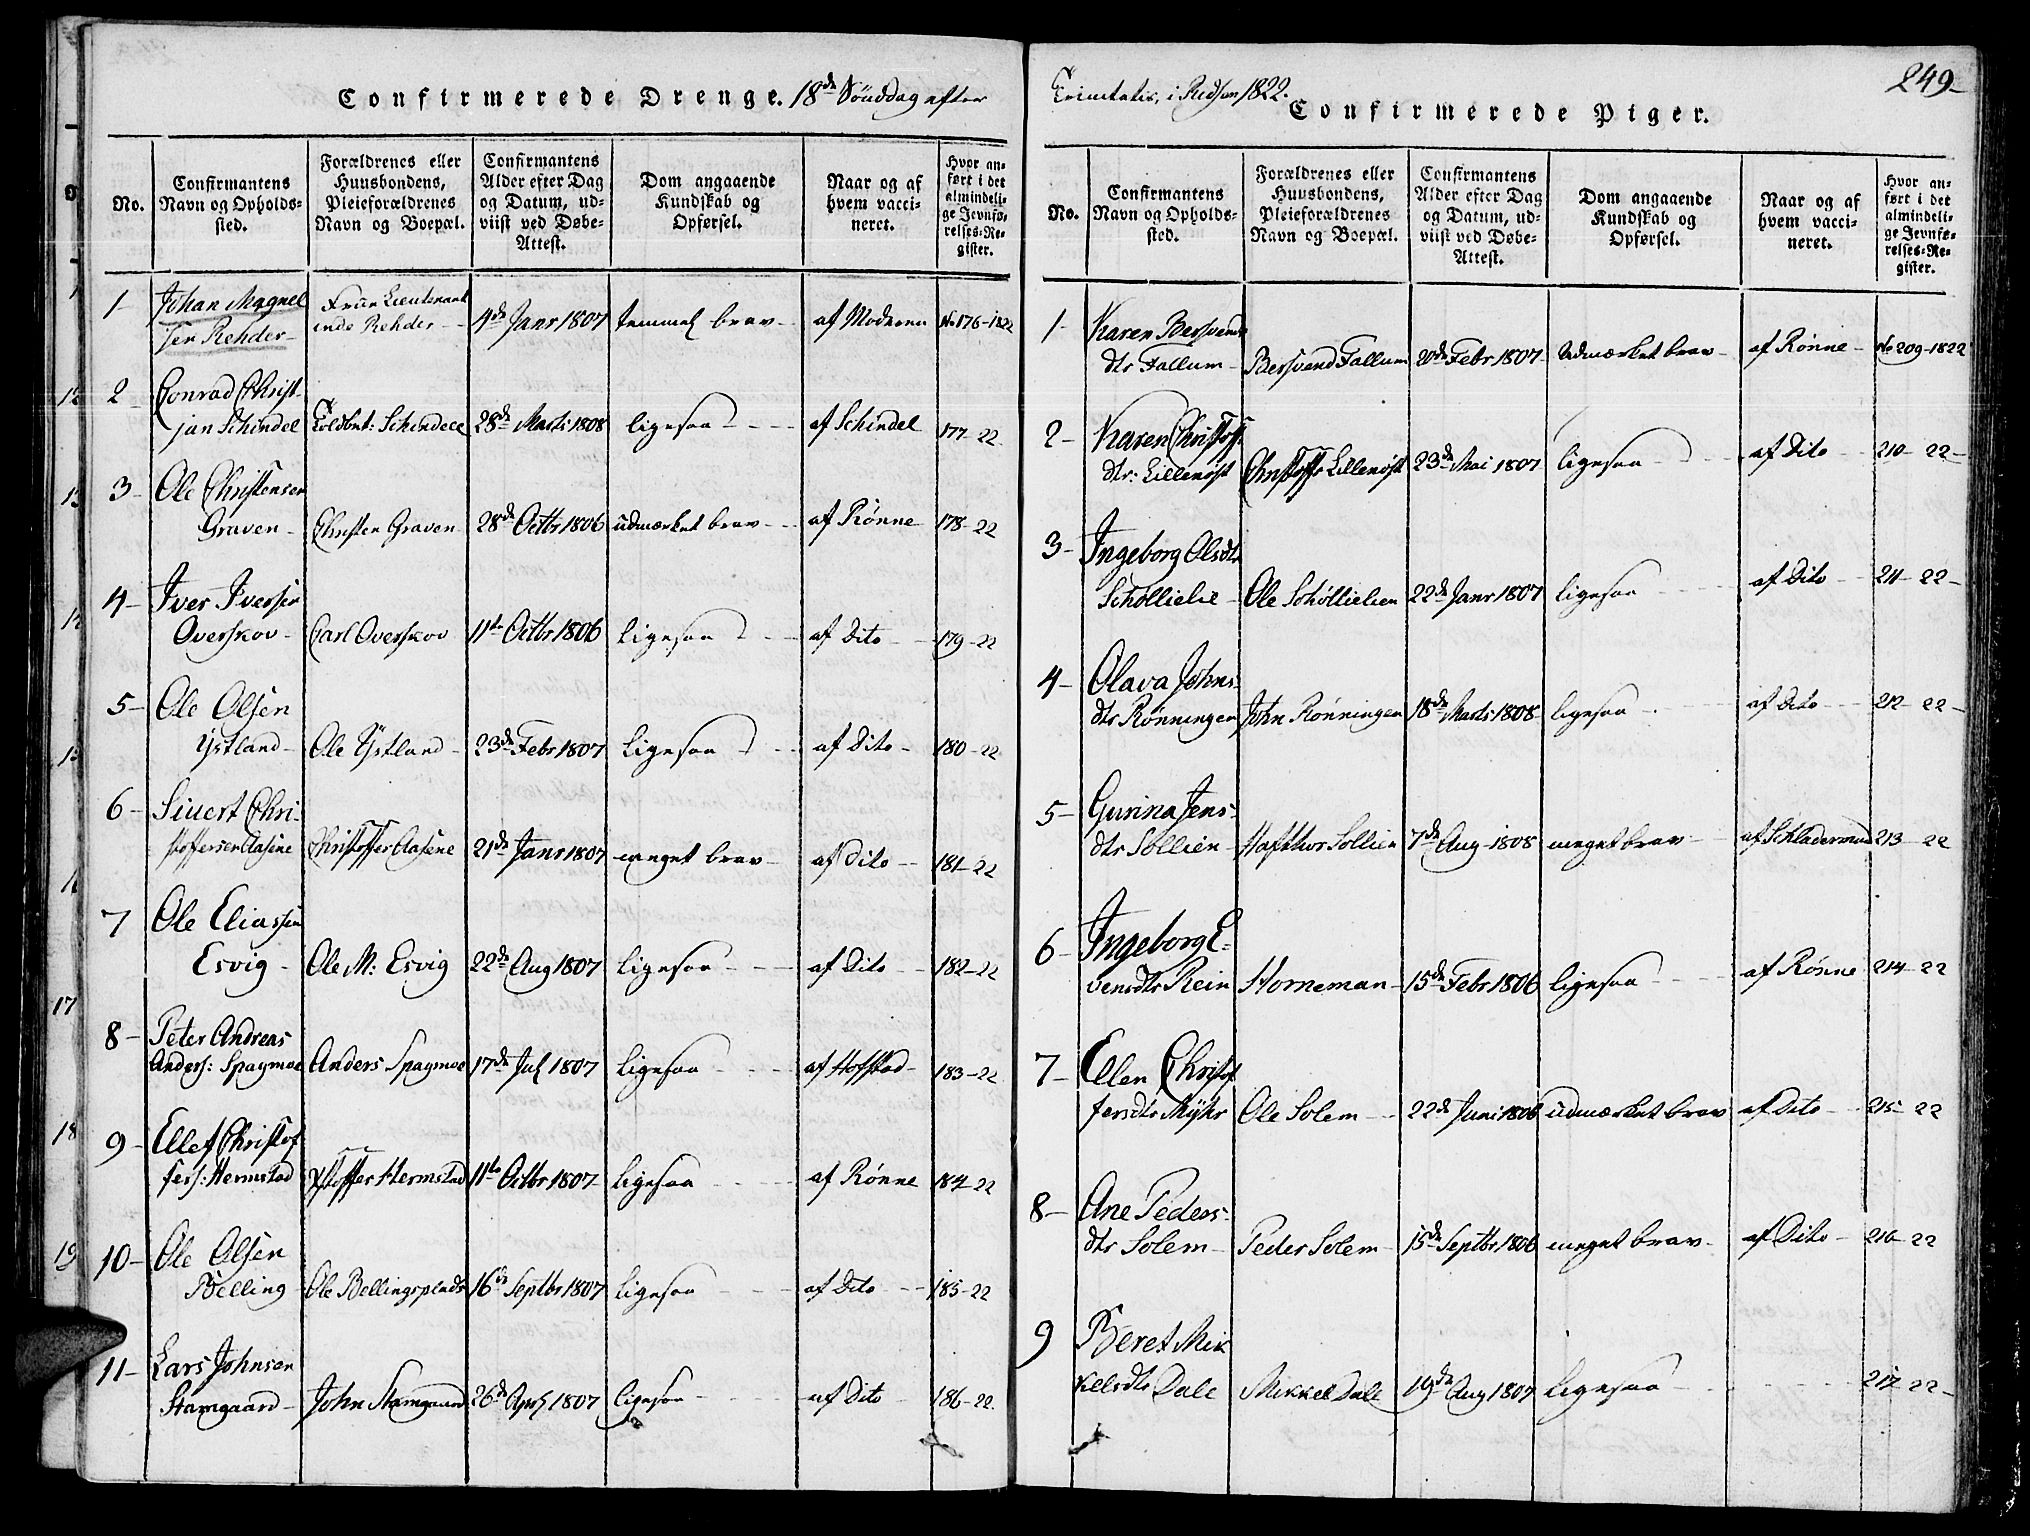 Confirmerede Drenge. 18de Sönddag efter
No.
Confirmantens Navn og Opholds-sted.
Forældrenes eller Huusbondens, Pleieforældrenes Navn og Boepæl.
Confirmantens Alder efter Dag og Datum, ud-viist ved Døbe-Attest.
Dom angaaende Kundskab og Opførsel.
Naar og af hvem vacci-neret.
Hvor an-ført i det almindeli-ge Jevnfø-relses-Re-gister.
1 Johan Magnel Frue Lieutenant
sen Rehder inde Rehder 4de Janr 1807 temmel brav af Moderen No 176-1822
2 Conrad Christ-
jan Schindel Toldbet: Schindel 28de Marti 1808 ligesaa af Schindel 177-22
3 Ole Christensen
Graven Christen Graven 28de Octbr 1806 udmærket brav af Rønne 178-22
4 Iver Iversen
Overskov Carl Overskov 11te Octbr 1806 ligesaa af Dito 179-22
5 Ole Olsen
Ystland Ole Ystland 23de Febr 1807 ligesaa af Dito 180-22
6 Siuert Chri-
stoffersen Aasine Christoffer Aasene 21de Janr 1807 meget brav af Dito 181-22
7 Ole Eliassen
Esvig Ole M: Esvig 22de Aug 1807 ligesaa af Dito 182-22
8 Peter Andreas
Anders: Spagmoe Anders Spagmoe 17de Jul 1807 ligesaa af Hofstad 183-22
9 Ellef Christof
fers: Hermstad Xstoffer Hermstad 11te Octbr 1807 ligesaa af Rønne 184-22
10 Ole Olsen
Belling Ole Bellingsplads 16de Septbr 1807 ligesaa af Dito 185-22
11 Lars Johnsen
Stamgaard John Stamgaard 26de Apl 1807 ligesaa af Dito 186-22
Trinitatis, i 1822.
249
Confirmerede Piger.
No.
Confirmantens Navn og Opholds-sted.
Forældrenes eller Huusbondens, Pleieforældrenes Navn og Boepæl.
Confirmantens Alder efter Dag og Datum, ud-viist ved Døbe-Attest.
Dom angaaende Kundskab og Opførsel.
Naar og af hvem vacci-neret.
Hvor an-ført i det almindeli-ge Jevnfø-relses-Re-gister.
1 Karen Bersvends
dtr Fallum Bersvend Fallum 20de Febr 1807 Udmærket brav af Rønne No 209-1822
2 Karen Christoff
dtr: Lillenøst Christoffr Lillenøst 23de Mai 1807 ligesaa af Dito 210-22
3 Ingeborg Olsdtr
Schøllielie Ole Schøllielien 22de Janr 1807 ligesaa af Dito 211-22
4 Olava Johns-
dtr Rønningen John Rønningen 18de Marti 1808 ligesaa af Dito 212-22
5 Gurina Jens-
dtr Sollien Hafthor Sollien 7de Aug 1808 meget brav 213-22
6 Ingeborg E-
vensdtr Rein Horneman 15de Febr 1806 ligesaa af Rønne 214-22
7 Ellen Christof
fersdtr Myhr Ole Solem 22de Juni 1806 udmærket brav af Dito 215-22
8 Ane Peders-
dtr Solem Peder Solem 15de Septbr 1806 meget brav af Dito 216-22
9 Beret Mik
kelsdtr Dale Mikkel Dale 19de Aug 1807 ligesaa 217-22